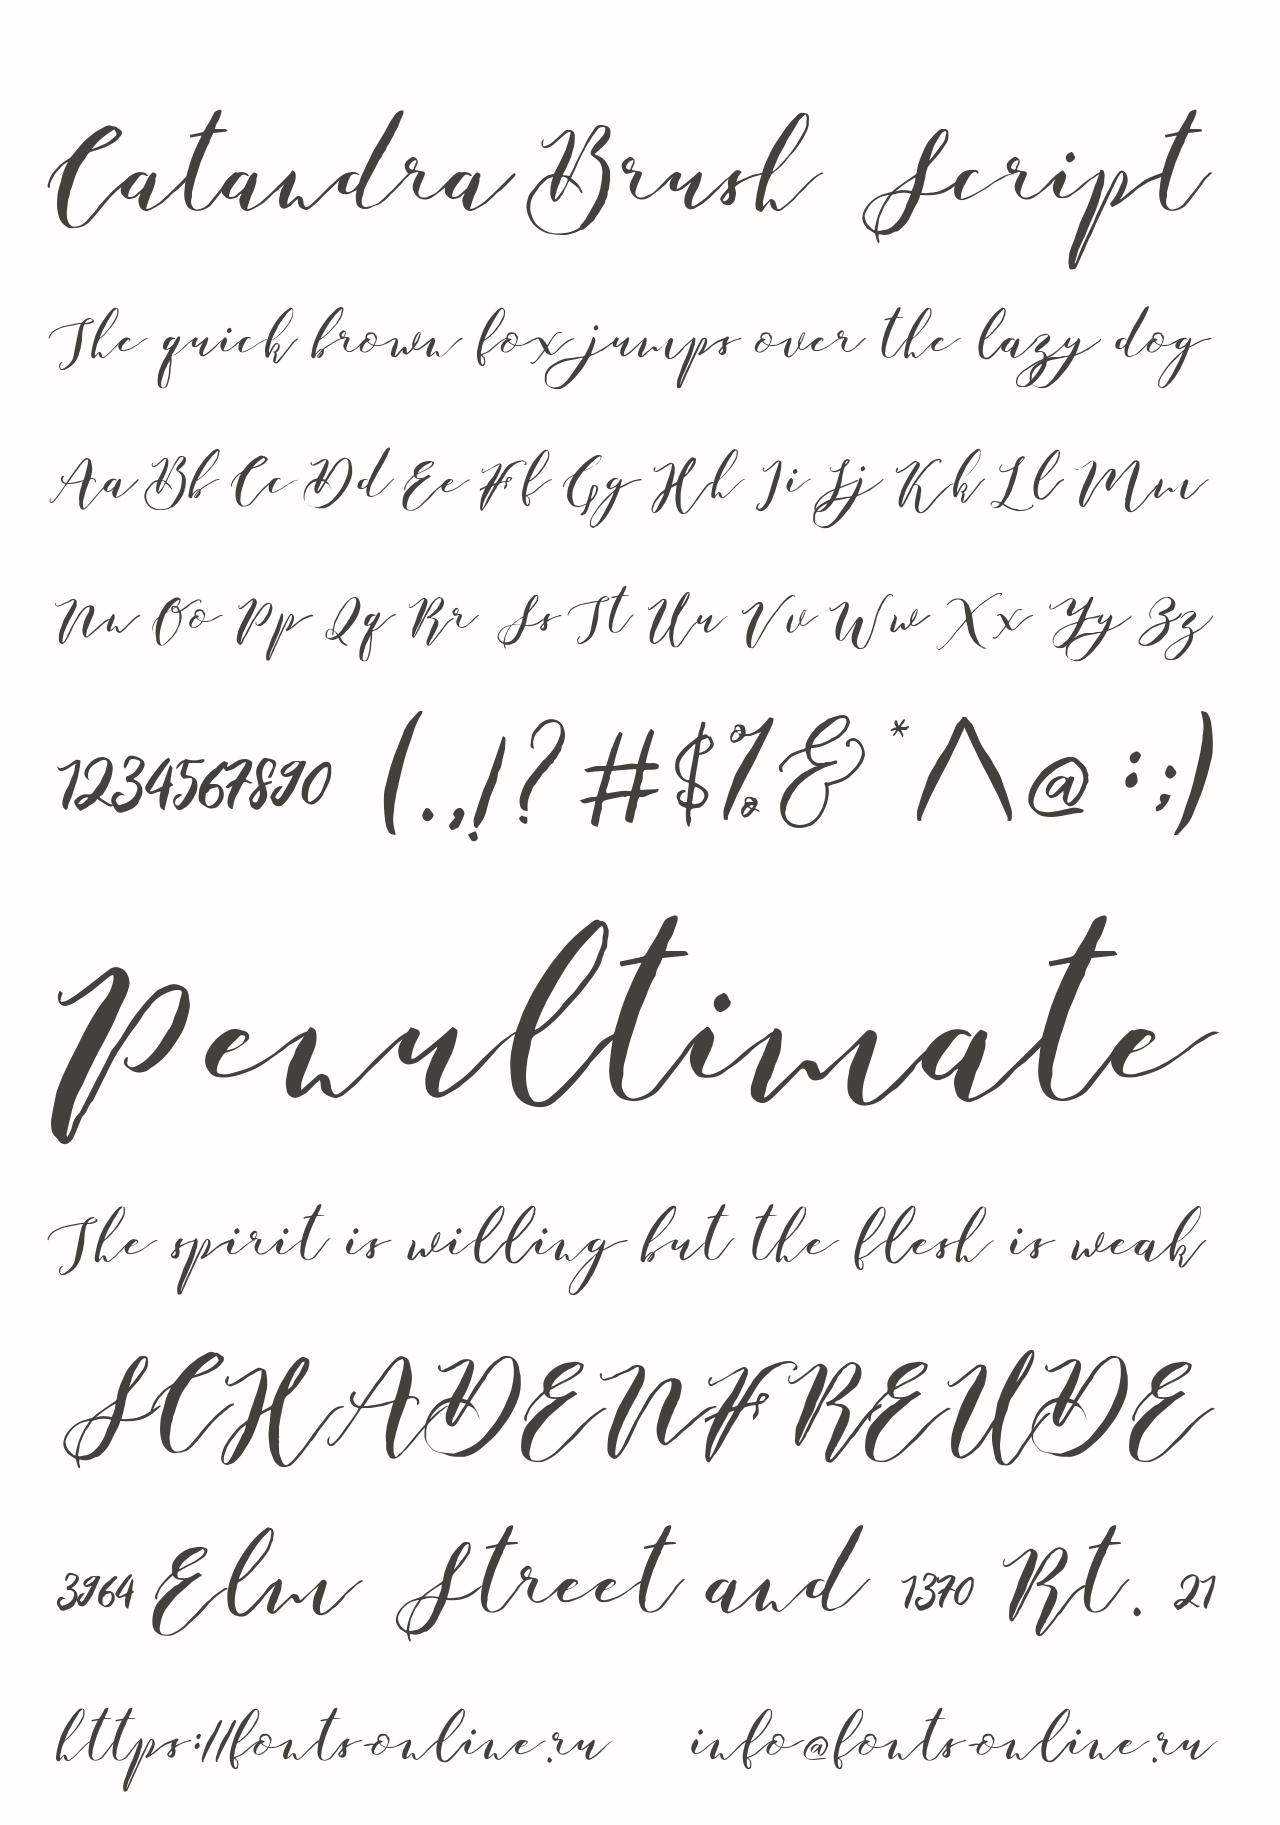 Catandra Brush Script
The quick brown fox jumps over the lazy dog
Aa Bb Cc Dd Ee Ff Gg Hh Ii Jj Kk Ll Mm
Nn Oo Pp Qq Rr Ss Tt Uu Vv Ww Xx Yy Zz
1234567890 (.,!?#$%&*^@:;)
Penultimate
The spirit is willing but the flesh is weak
SCHADENFREUDE
3964 Elm Street and 1370 Rt. 21
https://fonts-online.ru info@fonts-online.ru